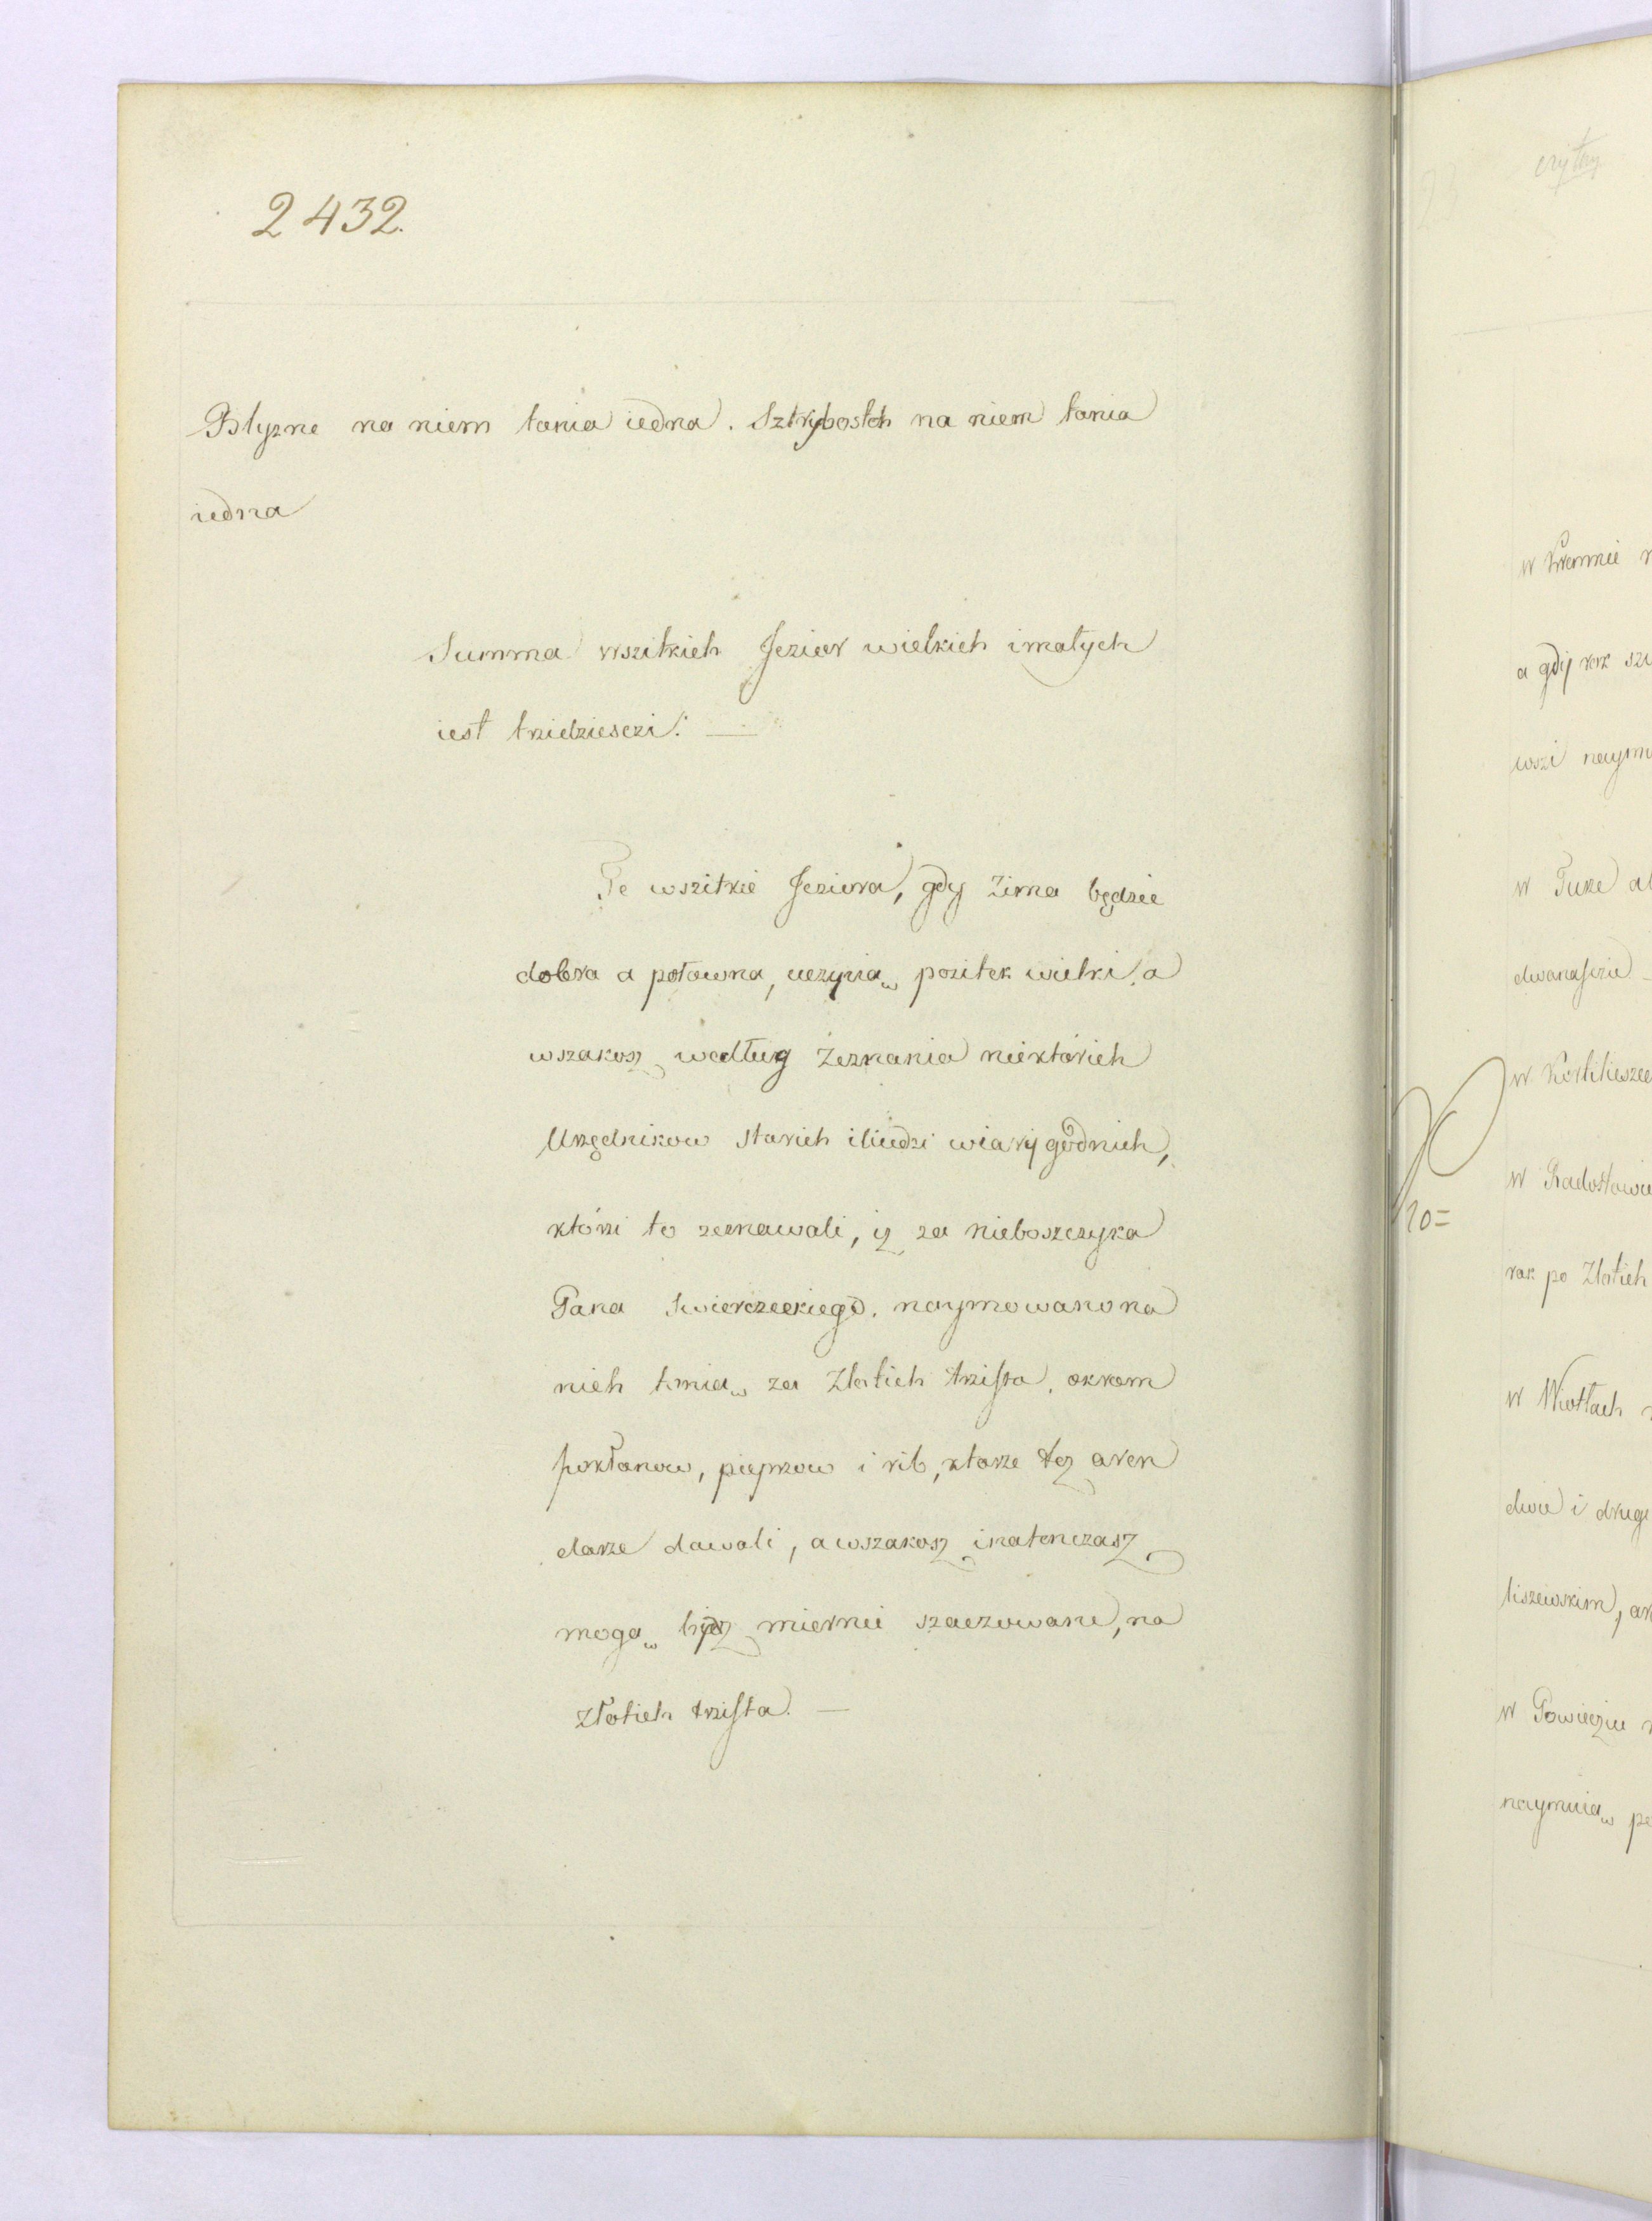 2432.
Blyzne na niem tonia iedna. Sztrybostoh na niem tonia
iedna
Summa wszitkich Jezior wielkich i małych
iest trzidziesczi.
Te wszitkie Jeziora, gdy Zima będzie
dobra a połowna, uczynia pozitek wielki, a
wszakosz według Zeznania niektórich
Urzędnikow starich i liudzi wiary godnich,
którzi to zeznawali, iz za nieboszczyka
Pana Swierczeckiego. naymowano na
nich tonia za Złotich trzista, okrom
pokłonow, pieprzow i rib, ktorze tez aren
darze dawali, a wszakosz i natenczasz
moga bydz miernie szaczowane, na
złotich trzista. —
czytay
w Krzemnie
a gdy
wszi naymu
w Turze al
dwanascie
w Kortilieszec
w Radostowie
20=
raz po Złotich
w Wiotłach
dwie i drugi
liszewskim, ar
w Powieczie
naymuia po